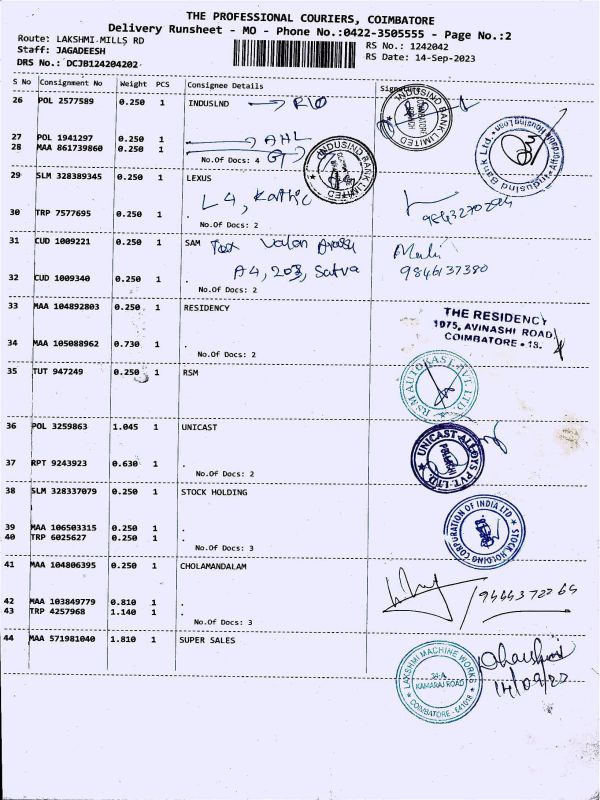 THE PROFESSIONAL COURIERS, COIMBATORE
Delivery Runsheet - MO - Phone No.:0422-3505555 - Page No.:2
Route: LAKSHMI MILLS RD
RS No.: 1242042
Staff: JAGADEESH
RS Date: 14-Sep-2023
DRS No.: DCJB124204202
S No Consignment No Weight PCS Consignee Details Signature
26 POL 2577589 0.250 1 INDUSLND → R/O
27 POL 1941297 0.250 1 AHL
28 MAA 861739860 0.250 1 GTJ
No.Of Docs: 4
INDUSIND BANK LIMITED
INDUSIND BANK LIMITED
IndusInd Bank Ltd
29 SLM 328389345 0.250 1 LEXUS
L4, Kathic
30 TRP 7577695 0.250 1 .
No.Of Docs: 2
31 CUD 1009221 0.250 1 SAM
A4, 203, Satva
9846137380
32 CUD 1009340 0.250 1 .
No.Of Docs: 2
33 MAA 104892803 0.250 1 RESIDENCY
THE RESIDENCY
1075, AVINASHI ROAD
COIMBATORE - 18.
34 MAA 105088962 0.730 1 .
No.Of Docs: 2
35 TUT 947249 0.250 1 RSM
RSM AUTOKAST PVT LTD
36 POL 3259863 1.045 1 UNICAST
UNICAST ALLOYS PVT. LTD.
POLLACHI
37 RPT 9243923 0.630 1 .
No.Of Docs: 2
38 SLM 328337079 0.250 1 STOCK HOLDING
STOCK HOLDING CORPORATION OF INDIA LTD
39 MAA 106503315 0.250 1 .
40 TRP 6025627 0.250 1 .
No.Of Docs: 3
41 MAA 104806395 0.250 1 CHOLAMANDALAM
42 MAA 103849779 0.810 1 .
43 TRP 4257968 1.140 1 .
No.Of Docs: 3
44 MAA 571981040 1.810 1 SUPER SALES
LAKSHMI MACHINE WORKS
34-A
KAMARAJ ROAD
COIMBATORE - 641018